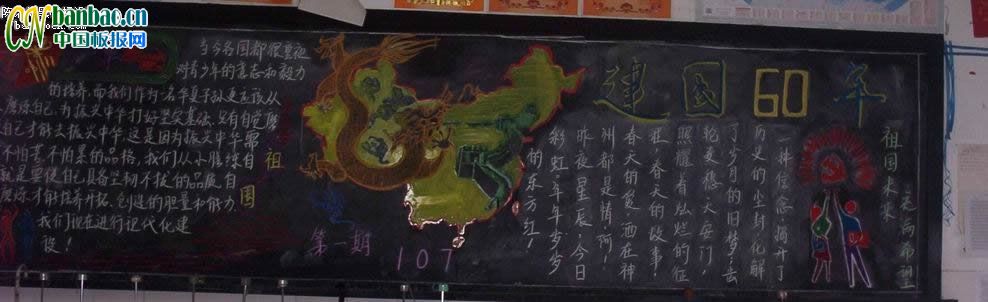 CN banbac.cn
中国板报网
当今各国都很重视
对青少年的意志和毅力
的培养,而我们作为一名华夏子孙更应该从
磨练自己,为振兴中华打好坚实基础,只有自觉磨
自己才能去振兴中华,这是因为振兴中华需
不怕苦不怕累的品格,我们从小磨练自
就是要使自己具备坚韧不拔的品质,自
磨练才能培养开拓、创造的胆量和能力.
我们现在进行现代化建
设!
祖
国
第一期
107
建国60年
一种信念揭开了
历史的尘封,化解
了岁月的旧梦;去
沧桑 天安门,
照耀着灿烂的征
征 春天的故事
春天的 洒在神
州都是情,啊!
昨夜星辰,今日
彩虹,年年岁岁
的东方红!
祖国未来
充满希望